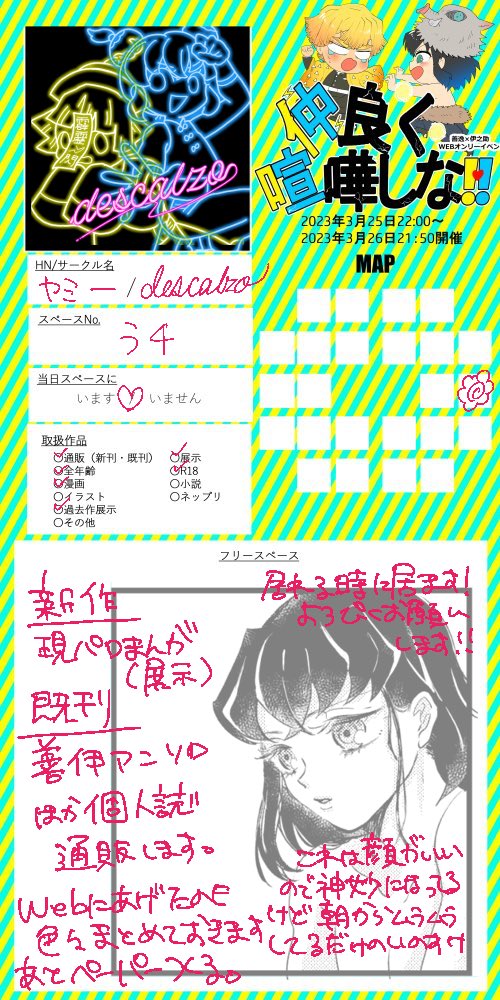 霹靂
descalzo
仲良く
喧嘩しな!!
善逸×伊之助
WEBオンリーイベン
2023年3月25日22:00～
2023年3月26日21:50開催
MAP
HN/サークル名
ヤミー/descalzo
スペースNo.
う4
当日スペースに
います♡/いません
取扱作品
○通販（新刊・既刊）
○展示
○全年齢
○R18
○漫画
○小説
○イラスト
○ネップリ
○過去作展示
○その他
フリースペース
居れる時に居ます!
よろぴくお願い
します!!
新作
現パロまんが
(展示)
既刊
善伊アンソロ
ほか個人誌
通販します。
Webにあげたのも
色々まとめておきます
あとペーパーつくる。
これは顔がいい
ので神妙になってる
けど朝からムラムラ
してるだけのいのすけ